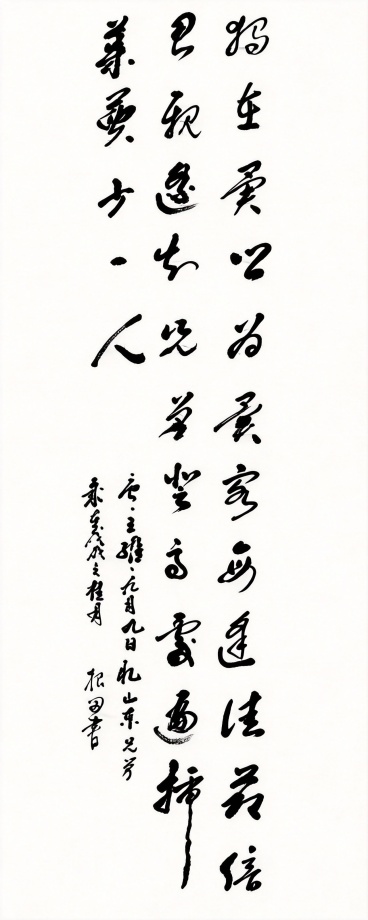 獨在異鄉為異客每逢佳節倍
思親遙知兄弟登高處遍插
茱萸少一人
唐·王維·九月九日憶山東兄弟
歲在戊戌之桂月
田書